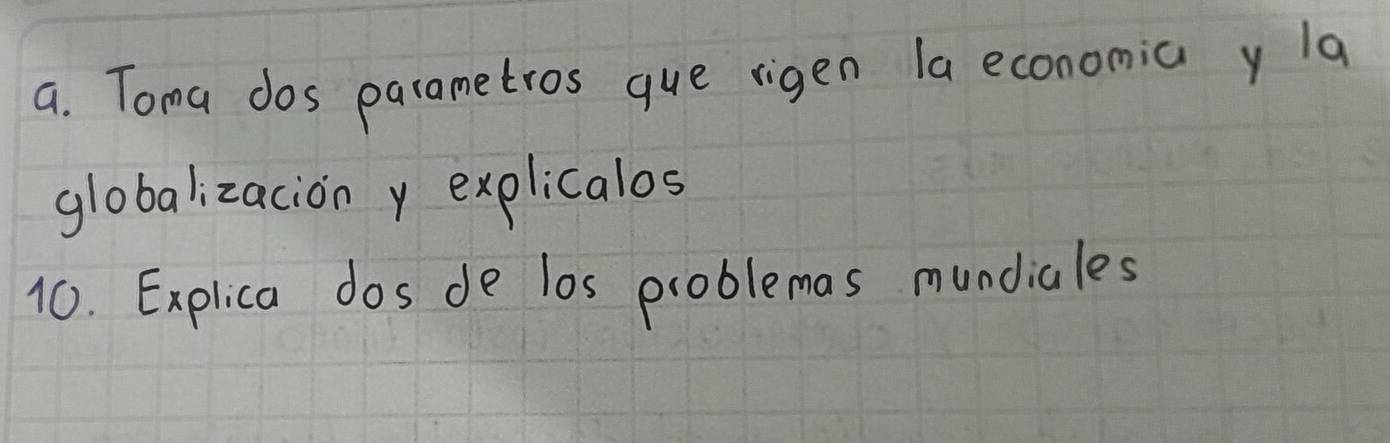 9. Toma dos parametros que rigen la economia y la
globalización y explicalos
10. Explica dos de los problemas mundiales